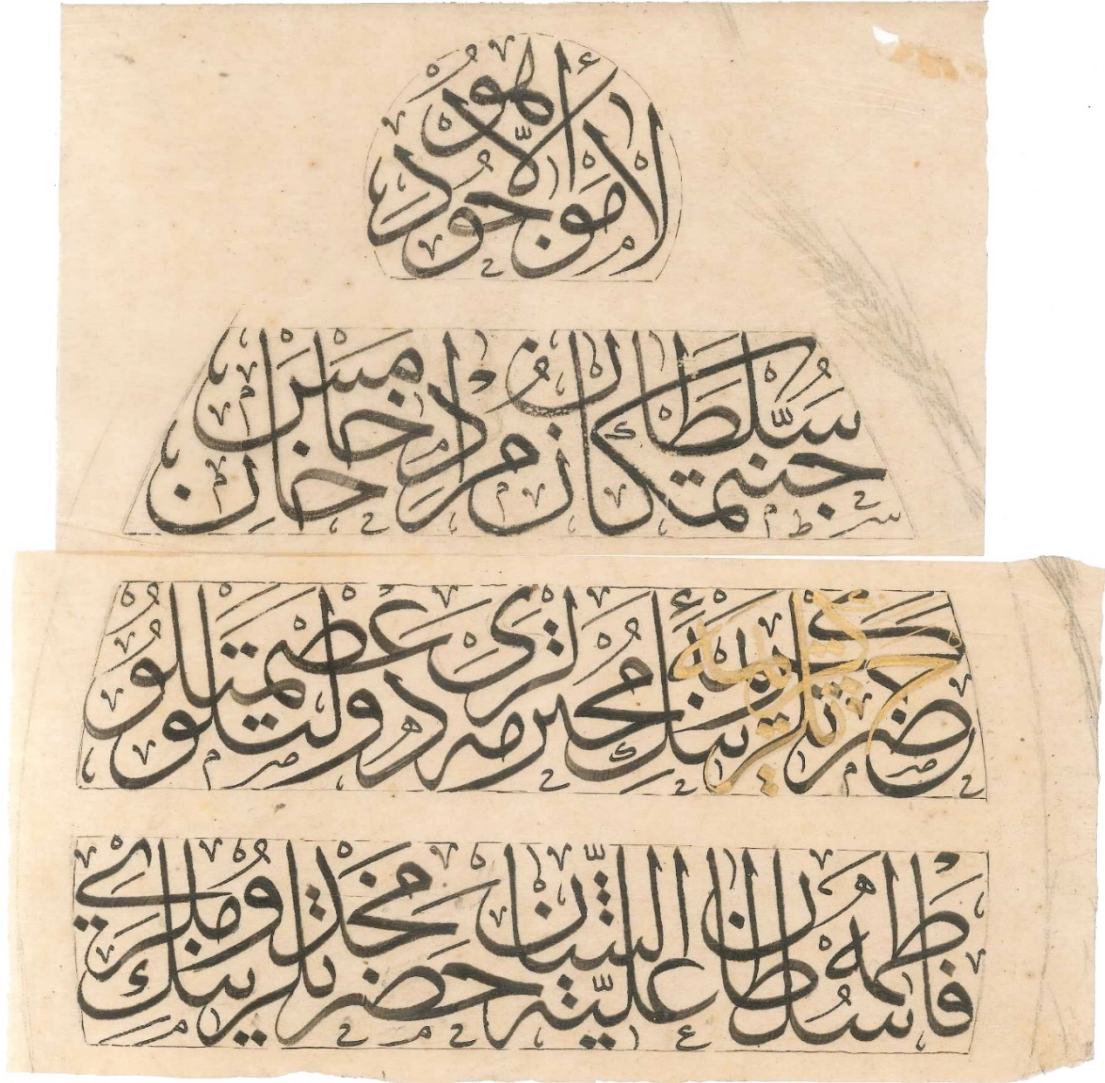 لا موجود الا هو
جنتمكان سلطان مراد خان خامس
حضرتلرينك كريمۀ محترمه لرى دولتلو عصمتلو
فاطمه سلطان عليّة الشّان حضرتلرينك مخدوملرى